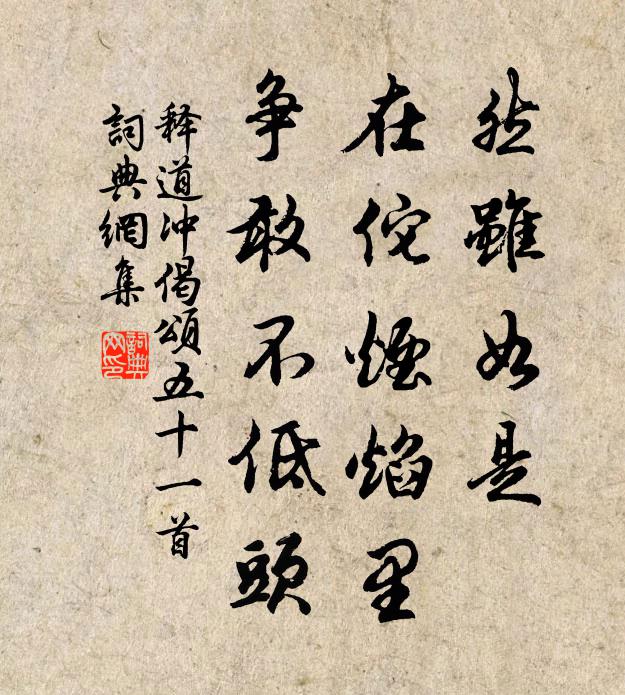 然雖如是
在佗煙焰里
爭敢不低頭
释道冲偈頌五十一首
詞典網集
詞典網印